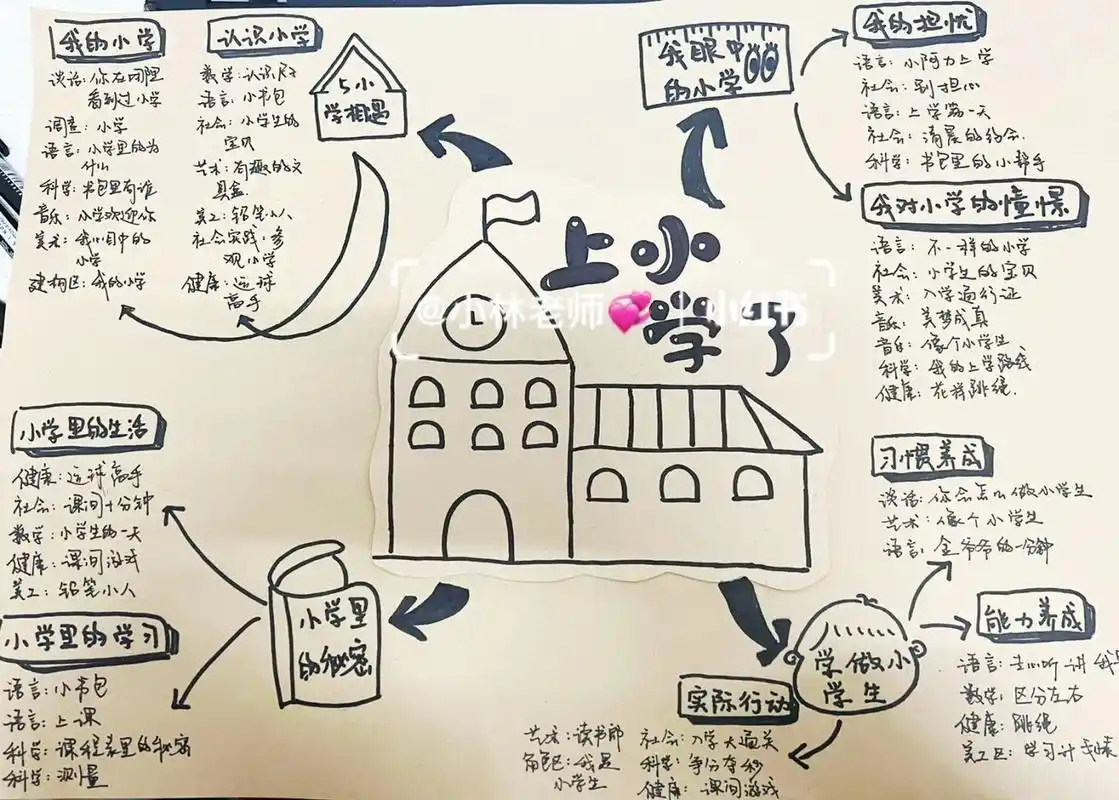 我的小学
谈话:你在哪里
看到过小学
调查:小学
语言:小学里的为
什么
科学:书包里有谁
音乐:小学欢迎你
美术:我心目中的
小学
建构区:我的小学
认识小学
数学:认识尺子
语言:小书包
社会:小学生的
宝贝
艺术:有趣的文
具盒
美工:铅笔小人
社会实践:参
观小学
健康:运球
高手
与小
学相遇
我眼中
的小学
我的担忧
语言:小阿力上学
社会:别担心
语言:上学第一天
社会:清晨的约会
科学:书包里的小帮手
我对小学的憧憬
语言:不一样的小学
社会:小学生的宝贝
美术:入学通行证
音乐:美梦成真
音乐:像个小学生
科学:我的上学路线
健康:花样跳绳
上小
学了
@小林老师 小红书
小学里的生活
健康:运球高手
社会:课间十分钟
数学:小学生的一天
健康:课间游戏
美工:铅笔小人
小学里的学习
语言:小书包
语言:上课
科学:课程表里的秘密
科学:测量
小学里
的秘密
学做小
学生
习惯养成
谈话:你会怎么做小学生
艺术:像个小学生
语言:金爷爷的一分钟
能力养成
语言:去心听讲我
数学:区分左右
健康:跳绳
美工区:学习计划表
实际行动
艺术:读书郎
角色区:我是
小学生
社会:入学大通关
科学:争分夺秒
健康:课间游戏